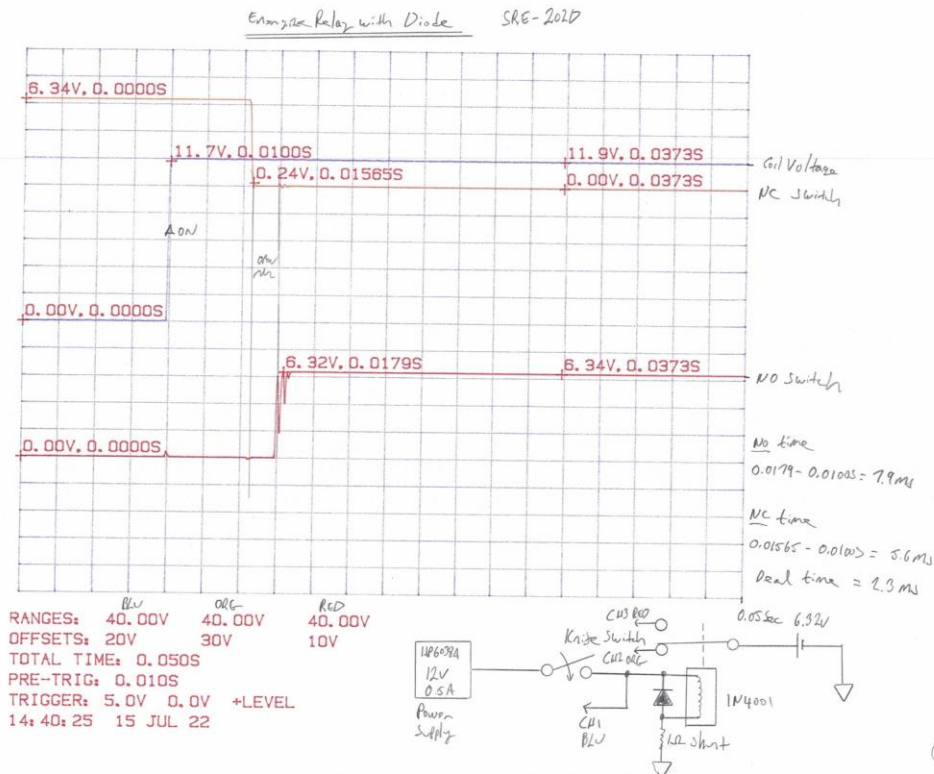 Energize Relay with Diode SRE-202D
6.34V, 0.0000S
11.7V, 0.0100S
11.9V, 0.0373S
Coil Voltage
0.24V, 0.01565S
0.00V, 0.0373S
NC Switch
ON
0.00V, 0.0000S
6.32V, 0.0179S
6.34V, 0.0373S
NO Switch
0.00V, 0.0000S
NO time
0.0179 - 0.0100S = 7.9ms
NC time
0.01565 - 0.0100S = 5.6ms
Dead time = 2.3ms
BLU ORG RED
RANGES: 40.00V 40.00V 40.00V
OFFSETS: 20V 30V 10V
TOTAL TIME: 0.050S
PRE-TRIG: 0.010S
TRIGGER: 5.0V 0.0V +LEVEL
14:40:25 15 JUL 22
0.05sec 6.32V
CH3 RED
Knife Switch
CH2 ORG
HP6038A
12V
0.5A
Power
Supply
CH1
BLU
1N4001
1Ω Shunt